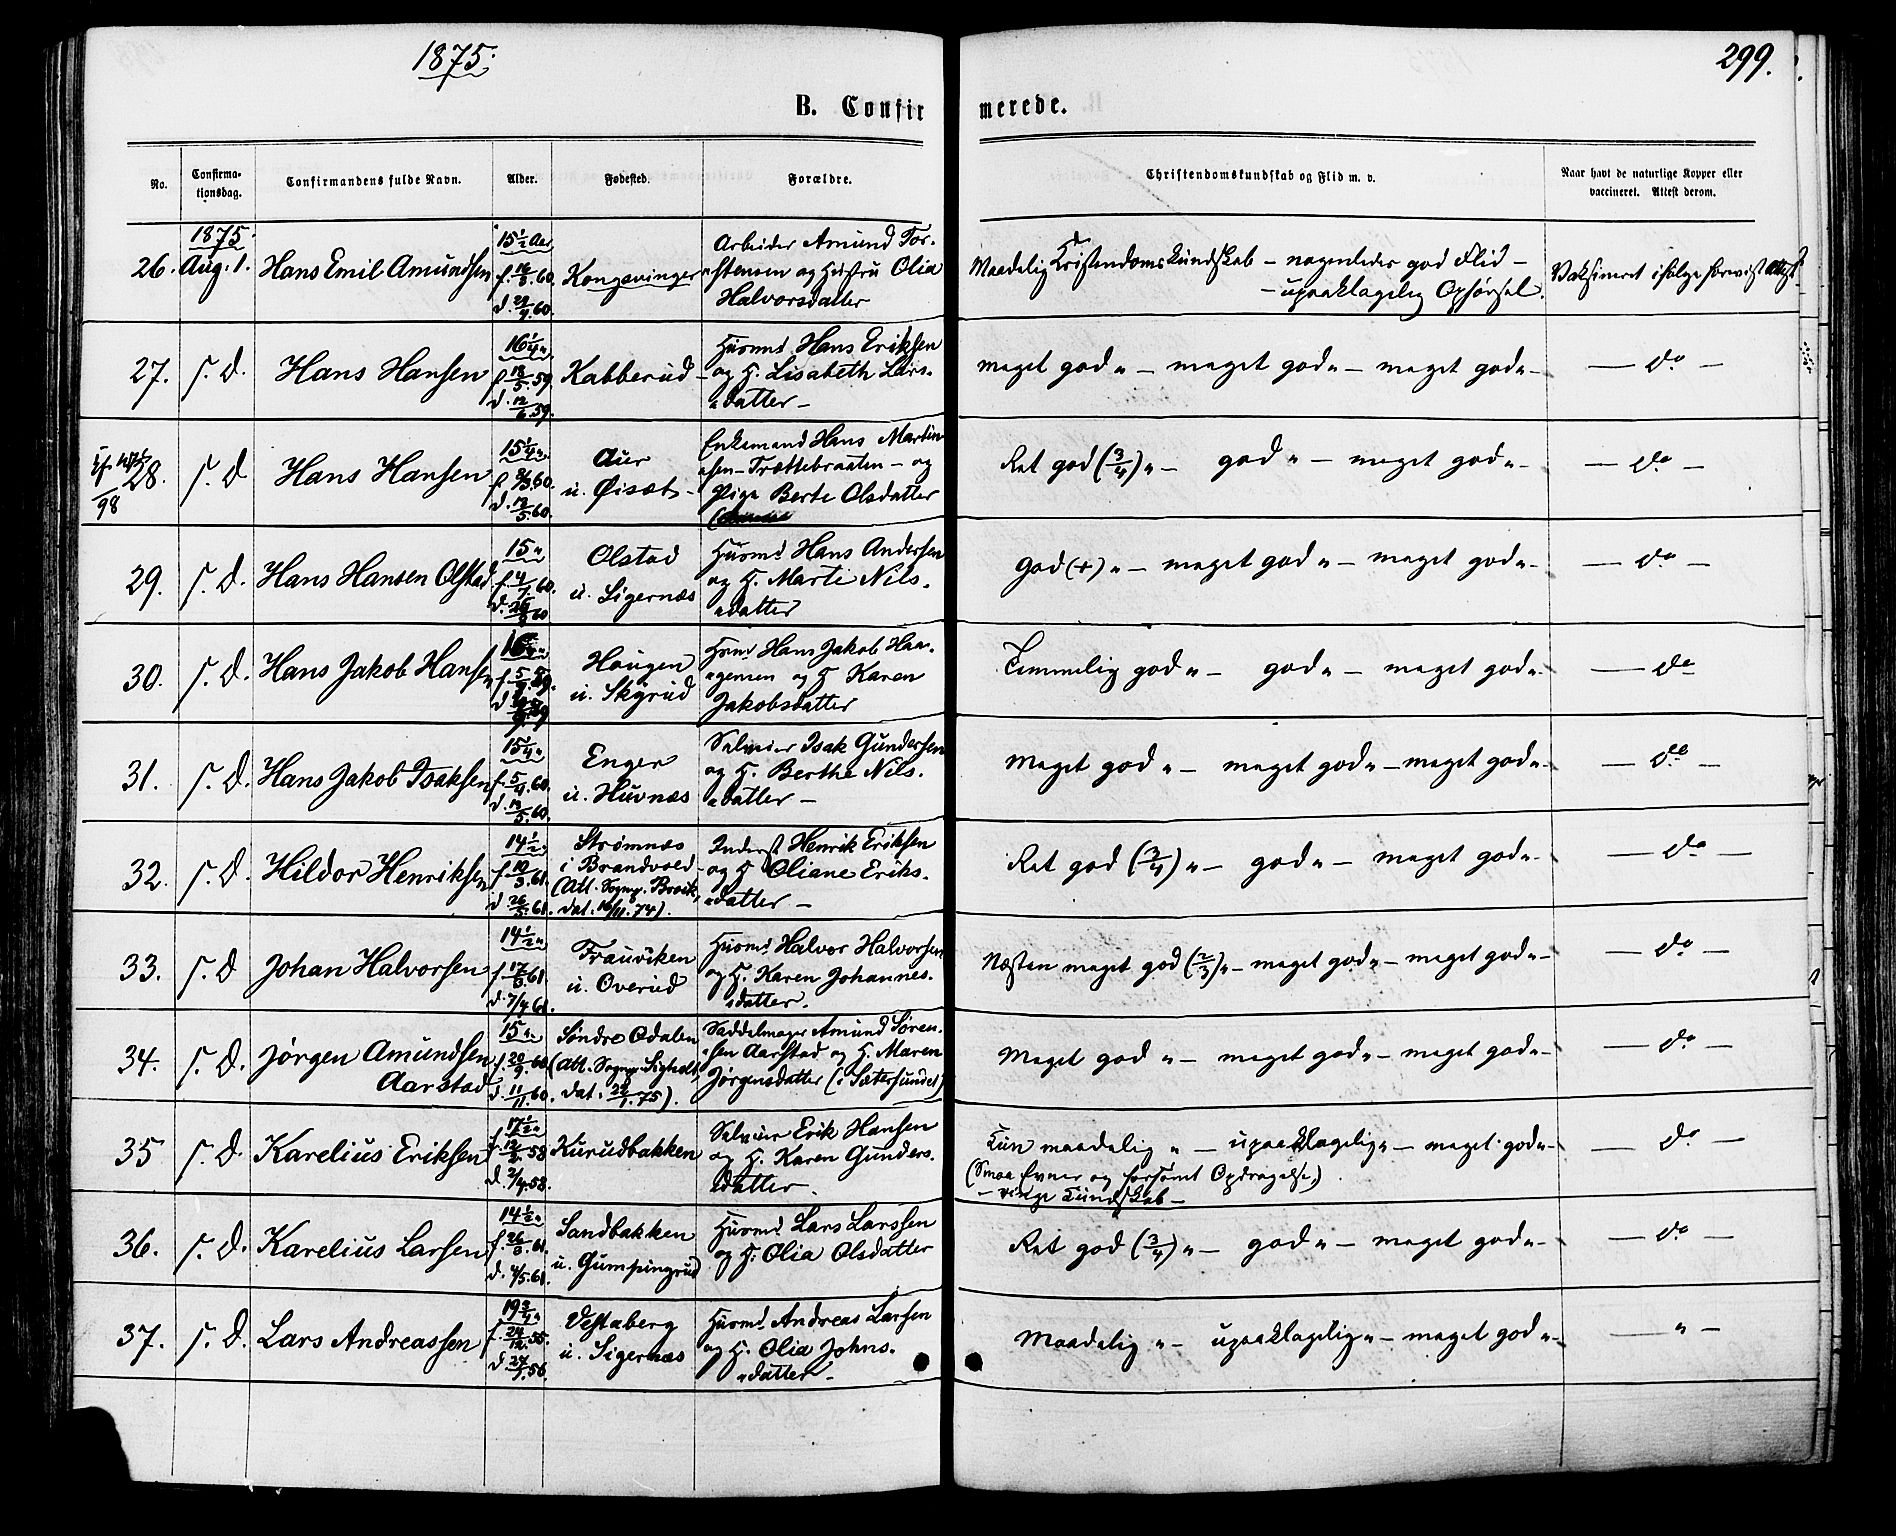 1875.
299.
B. Confirmerede.
No. Confirmationsdag. Confirmandens fulde Navn. Alder. Fødested. Forældre. Christendomskundskab og Flid m. v. Naar havt de naturlige Kopper eller vaccineret. Attest derom.
1875.
26. Aug. 1. Hans Emil Amundsen 15 1/2 Aar f. 16/3.60. d. 29/4.60. Kongsvinger Arbeider Amund Torstensen og Hustru Olia Halvorsdatter Maadelig Kristendomskundskab – nogenledes god Flid – – upaaklagelig Opførsel. Vaksineret ifølge forevist Attest
27. s. d. Hans Hansen 16 1/4 " f. 13/5.59. d. 12/6.59. Kabberud Husmd Hans Eriksen og H. Lisabeth Larsdatter – Meget god " – meget god " – meget god " – – do –
28. s. d. Hans Hansen 15 1/4 " d. 13/5.60. Auer u. Øisæt Enkemand Hans Martinsen – Trættebraaten – og Pige Berte Olsdatter Ret god (3/4) " – god " – meget god " – – do –
29. s. d. Hans Hansen Olstad 15 " f. 4/7.60. Olstad u. Sigernæs Husmd Hans Andersen og H. Marte Nilsdatter God (+) " – meget god " – meget god " – – do –
30. s. d. Hans Jakob Hansen Haugen u. Skyrud Husmd Hans Jakob Haagensen og H. Karen Jakobsdatter Temmelig god " – god " – meget god " – – do
31. s. d. Hans Jakob Isaksen 15 1/4 " f. 5/4.60. d. 13/5.60. Enger u. Huvnæs Selveier Isak Gundersen og H. Berthe Nilsdatter – Meget god " – meget god " – meget god " – – do –
32. s. d. Hildor Henriksen 14 1/2 " f. 10/3.61. d. 26/5.61. Strømnæs i Brandvold (Att. Sognp. Brock, dat. 16/11.74). Inderst Henrik Eriksen og H. Oliane Eriksdatter – Ret god (3/4) " – god " – meget god " – – do –
33. s. d. Johan Halvorsen 14 1/2 " f. 17/3.61. d. 7/4.61. Frauviken u. Overud Husmd Halvor Halvorsen og H. Karen Johannesdatter. Næsten meget god (2/3) " – meget god " – meget god " – – do –
34. s. d. Jørgen Amundsen Aarstad 15 " f. 20/9.60 d. 11/11.60. Søndre Odalen (Att. Sognp. Sigholt, dat. 22/1.75). Saddelmager Amund Sørensen Aarstad og H. Maren Jørgensdatter (i Sætersundet) Meget god " – meget god " – meget god " – – do –
35 s. d. Karelius Eriksen 17 1/2 " f. 12/3.58 d. 2/4.58. Kurudbakken Selveier Erik Hansen og H. Karen Gundersdatter. Kun maadelig " – upaaklagelig " – meget god " – (Smaa Evner og forsømt Opdragelse,) – ringe Kundskab – – do –
36. s. d. Karelius Larsen 14 1/2 " f. 26/3.61. d. 4/5.61. Sandbakken u. Gumpingrud Husmd Lars Larssen og H. Olia Olsdatter Ret god (3/4) " – god " – meget god " – – do –
37. s. d. Lars Andreassen 19 3/4 " f. 24/12.55. d. 27/1.56. Vestaberg u. Sigernæs Husmd. Andreas Larsen og H. Olia Johnsdatter – Maadelig " – upaaklagelig " – meget god " – – " –